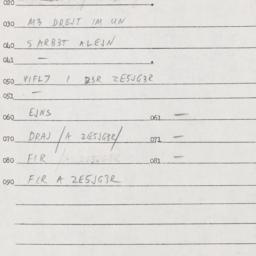 020
030 M3 DREJT IM UN
040 5 ARB3T ALEJN
041 —
050 VIFL7 I D3R ZE5JG3R
051 —
060 EJNS 061 —
070 DRAJ /A ZE5JG3R/ 071 —
080 FIR 081 —
090 FIR A ZE5JG3R